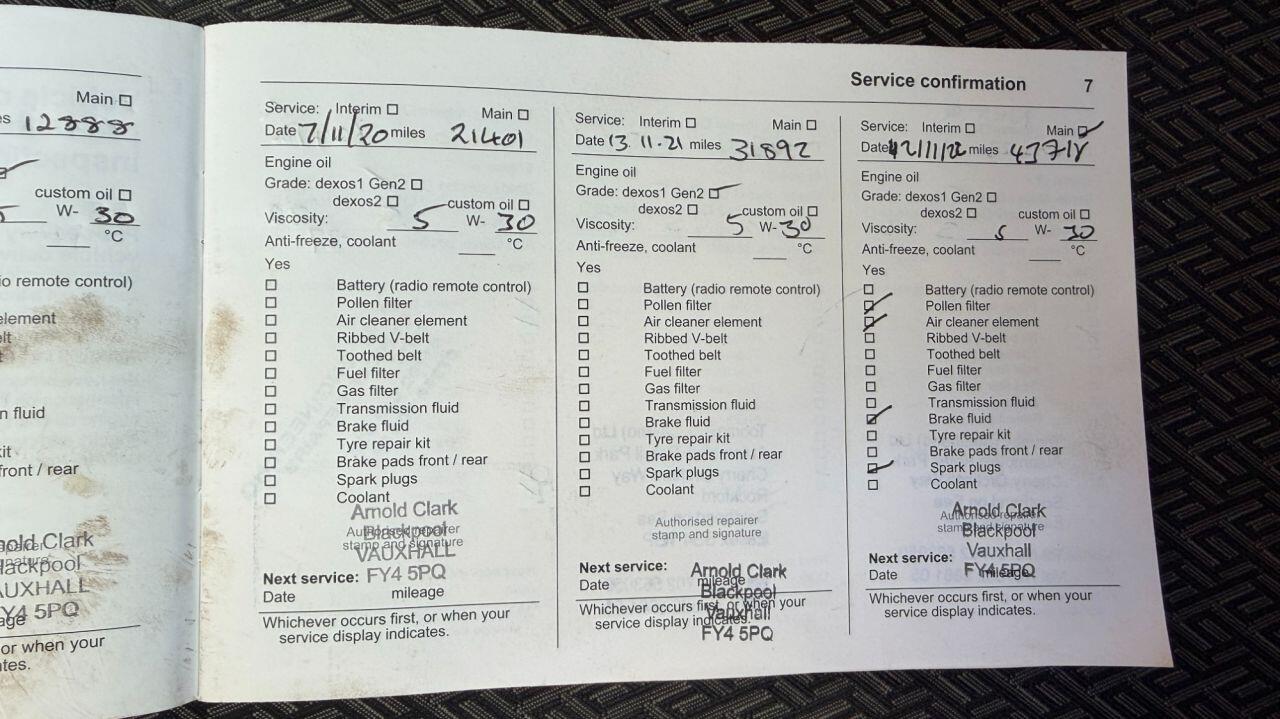 Main
12888
custom oil
W- 30
°C
io remote control)
element
elt
n fluid
kit
front / rear
nold Clark
lackpool
AUXHALL
Y4 5PQ
or when your
ates.
Service confirmation 7
Service: Interim Main
Date 7/11/20 miles 21401
Engine oil
Grade: dexos1 Gen2
dexos2 custom oil
Viscosity: 5 W- 30
Anti-freeze, coolant °C
Yes
Battery (radio remote control)
Pollen filter
Air cleaner element
Ribbed V-belt
Toothed belt
Fuel filter
Gas filter
Transmission fluid
Brake fluid
Tyre repair kit
Brake pads front / rear
Spark plugs
Coolant
Arnold Clark
Authorised repairer
Blackpool
stamp and signature
VAUXHALL
Next service: FY4 5PQ
Date mileage
Whichever occurs first, or when your
service display indicates.
Service: Interim Main
Date 13.11.21 miles 31892
Engine oil
Grade: dexos1 Gen2
dexos2 custom oil
Viscosity: 5 W- 30
Anti-freeze, coolant °C
Yes
Battery (radio remote control)
Pollen filter
Air cleaner element
Ribbed V-belt
Toothed belt
Fuel filter
Gas filter
Transmission fluid
Brake fluid
Tyre repair kit
Brake pads front / rear
Spark plugs
Coolant
Authorised repairer
stamp and signature
Next service:
Arnold Clark
Date mileage
Blackpool
Whichever occurs first, or when your
Vauxhall
service display indicates.
FY4 5PQ
Service: Interim Main
Date 12/11/22 miles
Engine oil
Grade: dexos1 Gen2
dexos2 custom oil
Viscosity: 5 W- 30
Anti-freeze, coolant °C
Yes
Battery (radio remote control)
Pollen filter
Air cleaner element
Ribbed V-belt
Toothed belt
Fuel filter
Gas filter
Transmission fluid
Brake fluid
Tyre repair kit
Brake pads front / rear
Spark plugs
Coolant
Arnold Clark
Authorised repairer
stamp and signature
Blackpool
Vauxhall
Next service:
FY4 5PQ
Date mileage
Whichever occurs first, or when your
service display indicates.